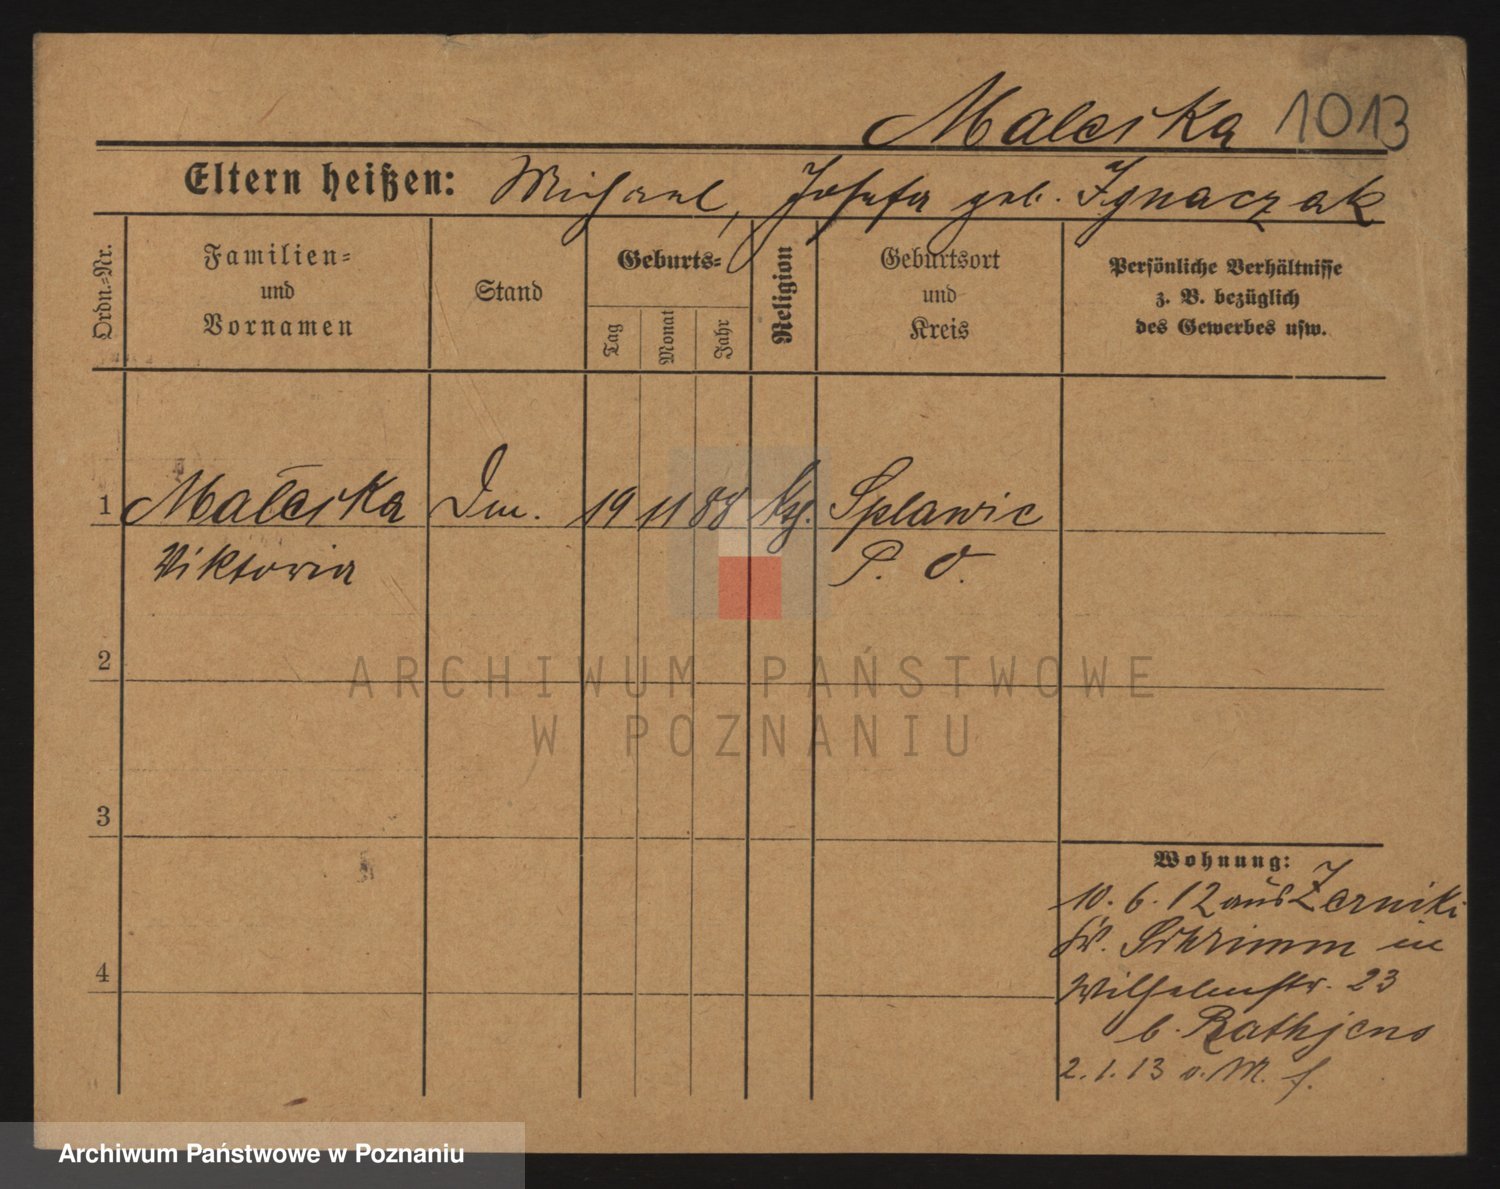 Malecika 1013
Eltern heißen: Michael, Josefa geb. Ignaczak
Ordn.-Nr.
Familien-
und
Vornamen
Stand
Geburts-
Tag
Monat
Jahr
Religion
Geburtsort
und
Kreis
Persönliche Verhältnisse
z. B. bezüglich
des Gewerbes usw.
1 Malecika Dm. 19 11 88 ksch. Splawie
Viktoria P. O.
2
3
4
Wohnung:
10. 6. 12 aus Zerniki
Kr. Schrimm in
Wilhelmstr. 23
b. Rathjens
2. 1. 13 o. M. f.
ARCHIWUM PAŃSTWOWE
W POZNANIU
Archiwum Państwowe w Poznaniu